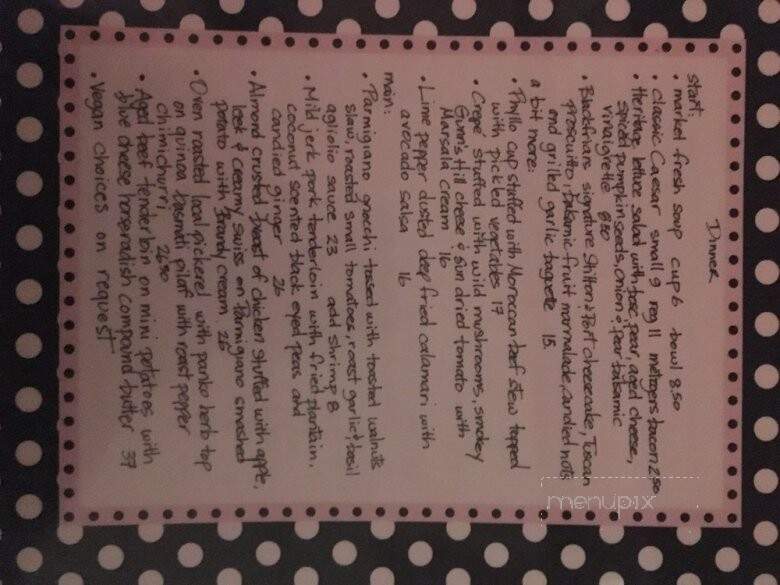 Dinner
start:
• market fresh soup cup 6 bowl 8.50
• Classic Caesar small 9 reg 11 metzgers bacon 2.50
• Heritage lettuce salad with bosc pear, aged cheese,
spiced pumpkin seeds, onion & pear balsamic
vinaigrette 8.50
• Blackfriars signature Stilton & Port cheesecake, Tuscan
prosciutto, balsamic fruit marmalade, candied nuts
and grilled garlic baguette 15
a bit more:
• Phyllo cup stuffed with Moroccan beef stew topped
with pickled vegetables 17
• Crepe stuffed with wild mushrooms, smokey
Gunn's Hill cheese & sun dried tomato with
Marsala cream 16
• Lime pepper dusted deep fried calamari with
avocado salsa 16
main:
• Parmigiano gnocchi tossed with toasted walnuts
slaw, roasted small tomatoes, roast garlic & basil
aglio olio sauce 23 add shrimp 8
• Mild jerk pork tenderloin with fried plantain,
coconut scented black eyed peas and
candied ginger 26
• Almond crusted breast of chicken stuffed with apple,
leek & creamy swiss on Parmigiano smashed
potato with Brandy cream 26
• Oven roasted local pickerel with panko herb top
on quinoa basmati pilaf with roast pepper
chimichurri, 26.50
• Aged beef tenderloin on mini potatoes with
blue cheese horseradish compound butter 37
• Vegan choices on request
menupix